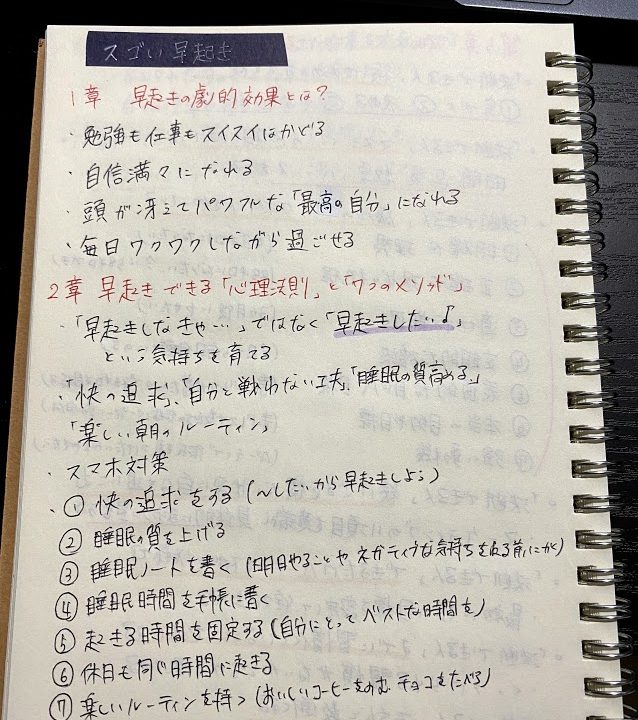 スゴい早起き
1章 早起きの劇的効果とは?
・勉強も仕事もスイスイはかどる
・自信満々になれる
・頭が冴えてパワフルな「最高の自分」になれる
・毎日ワクワクしながら過ごせる
2章 早起きできる「心理法則」と「7つのメソッド」
・「早起きしなきゃ…」ではなく「早起きしたい♪」
という気持ちを育てる
・「快の追求」、「自分と戦わない工夫」、「睡眠の質高める」
「楽しい朝のルーティン」
・スマホ対策
・① 快の追求をする(〜したいから早起きしよう)
② 睡眠の質を上げる
③ 睡眠ノートを書く(明日やることや、ネガティブな気持ちを寝る前にかく)
④ 睡眠時間を手帳に書く
⑤ 起きる時間を固定する(自分にとってベストな時間を)
⑥ 休日も同じ時間に起きる
⑦ 楽しいルーティンを持つ(おいしいコーヒーをのむ、チョコをたべる)